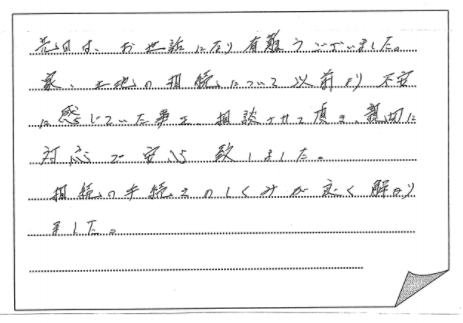 先日は、お世話になり有難うございました。
家、土地の相続について以前より不安
に感じていた事を、相談させて頂き、親切に
対応で安心致しました。
相続の手続きのしくみが良く解り
ました。